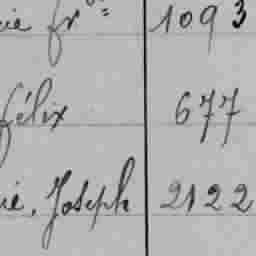 ie fr 1093
félix 677
ie, Joseph 2122